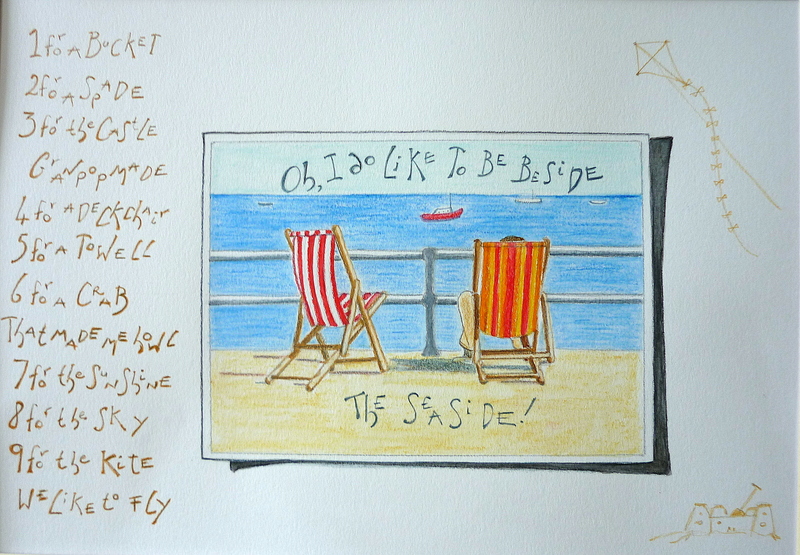 1 for a Bucket
2 for a Spade
3 for the Castle
Granpop made
4 for a Deckchair
5 for a Towell
6 for a Crab
That made me howl
7 for the Sunshine
8 for the Sky
9 for the Kite
We like to Fly
Oh, I do Like To Be Beside
The Seaside!